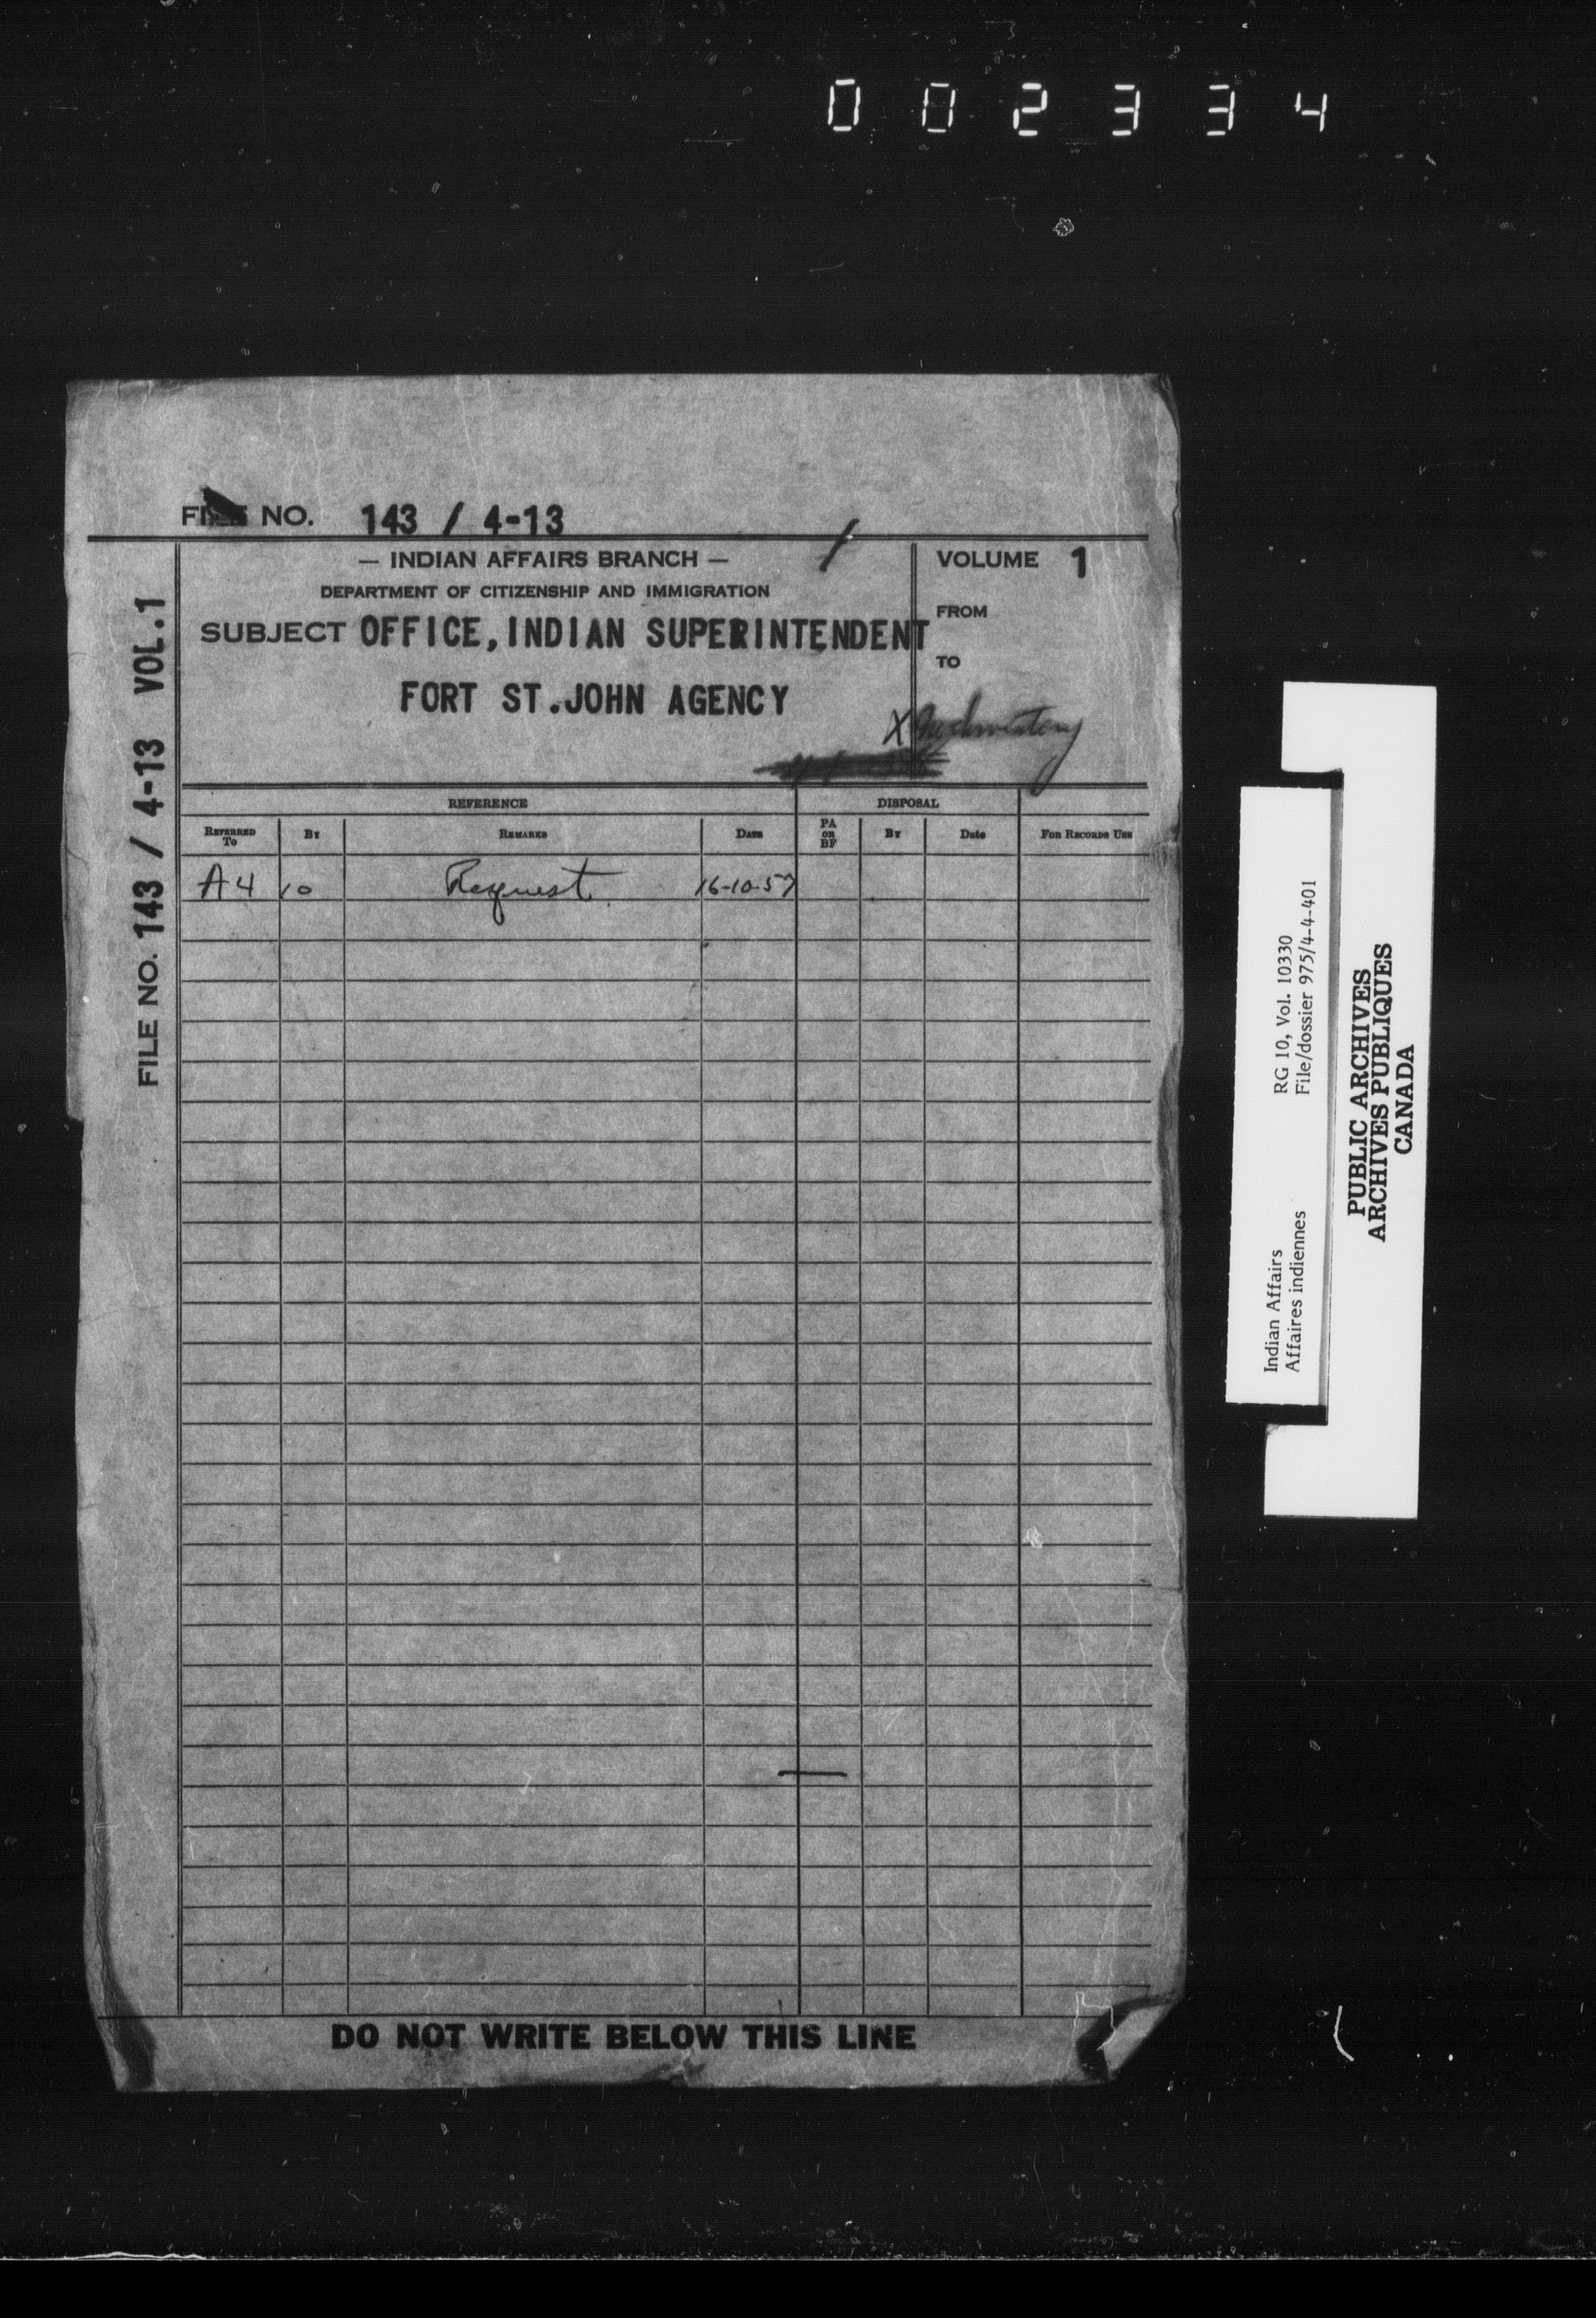 0 0 2 3 3 4
FILE NO. 143 / 4-13
— INDIAN AFFAIRS BRANCH —
DEPARTMENT OF CITIZENSHIP AND IMMIGRATION
SUBJECT OFFICE, INDIAN SUPERINTENDENT
FORT ST. JOHN AGENCY
VOLUME 1
FROM
TO
X
FILE NO. 143 / 4-13 VOL. 1
REFERENCE
DISPOSAL
REFERRED TO
BY
REMARKS
DATE
PA OR BF
BY
Date
FOR RECORDS USE
A4 10 Request 16-10-57
DO NOT WRITE BELOW THIS LINE
Indian Affairs RG 10, Vol. 10330
Affaires indiennes File/dossier 975/4-4-401
PUBLIC ARCHIVES
ARCHIVES PUBLIQUES
CANADA